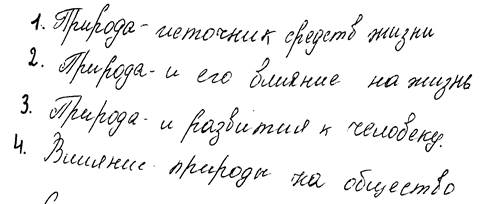 1. Природа - источник средств жизни
2. Природа - и его влияние на жизнь
3. Природа - и развития к человеку.
4. Влияние природы на общество